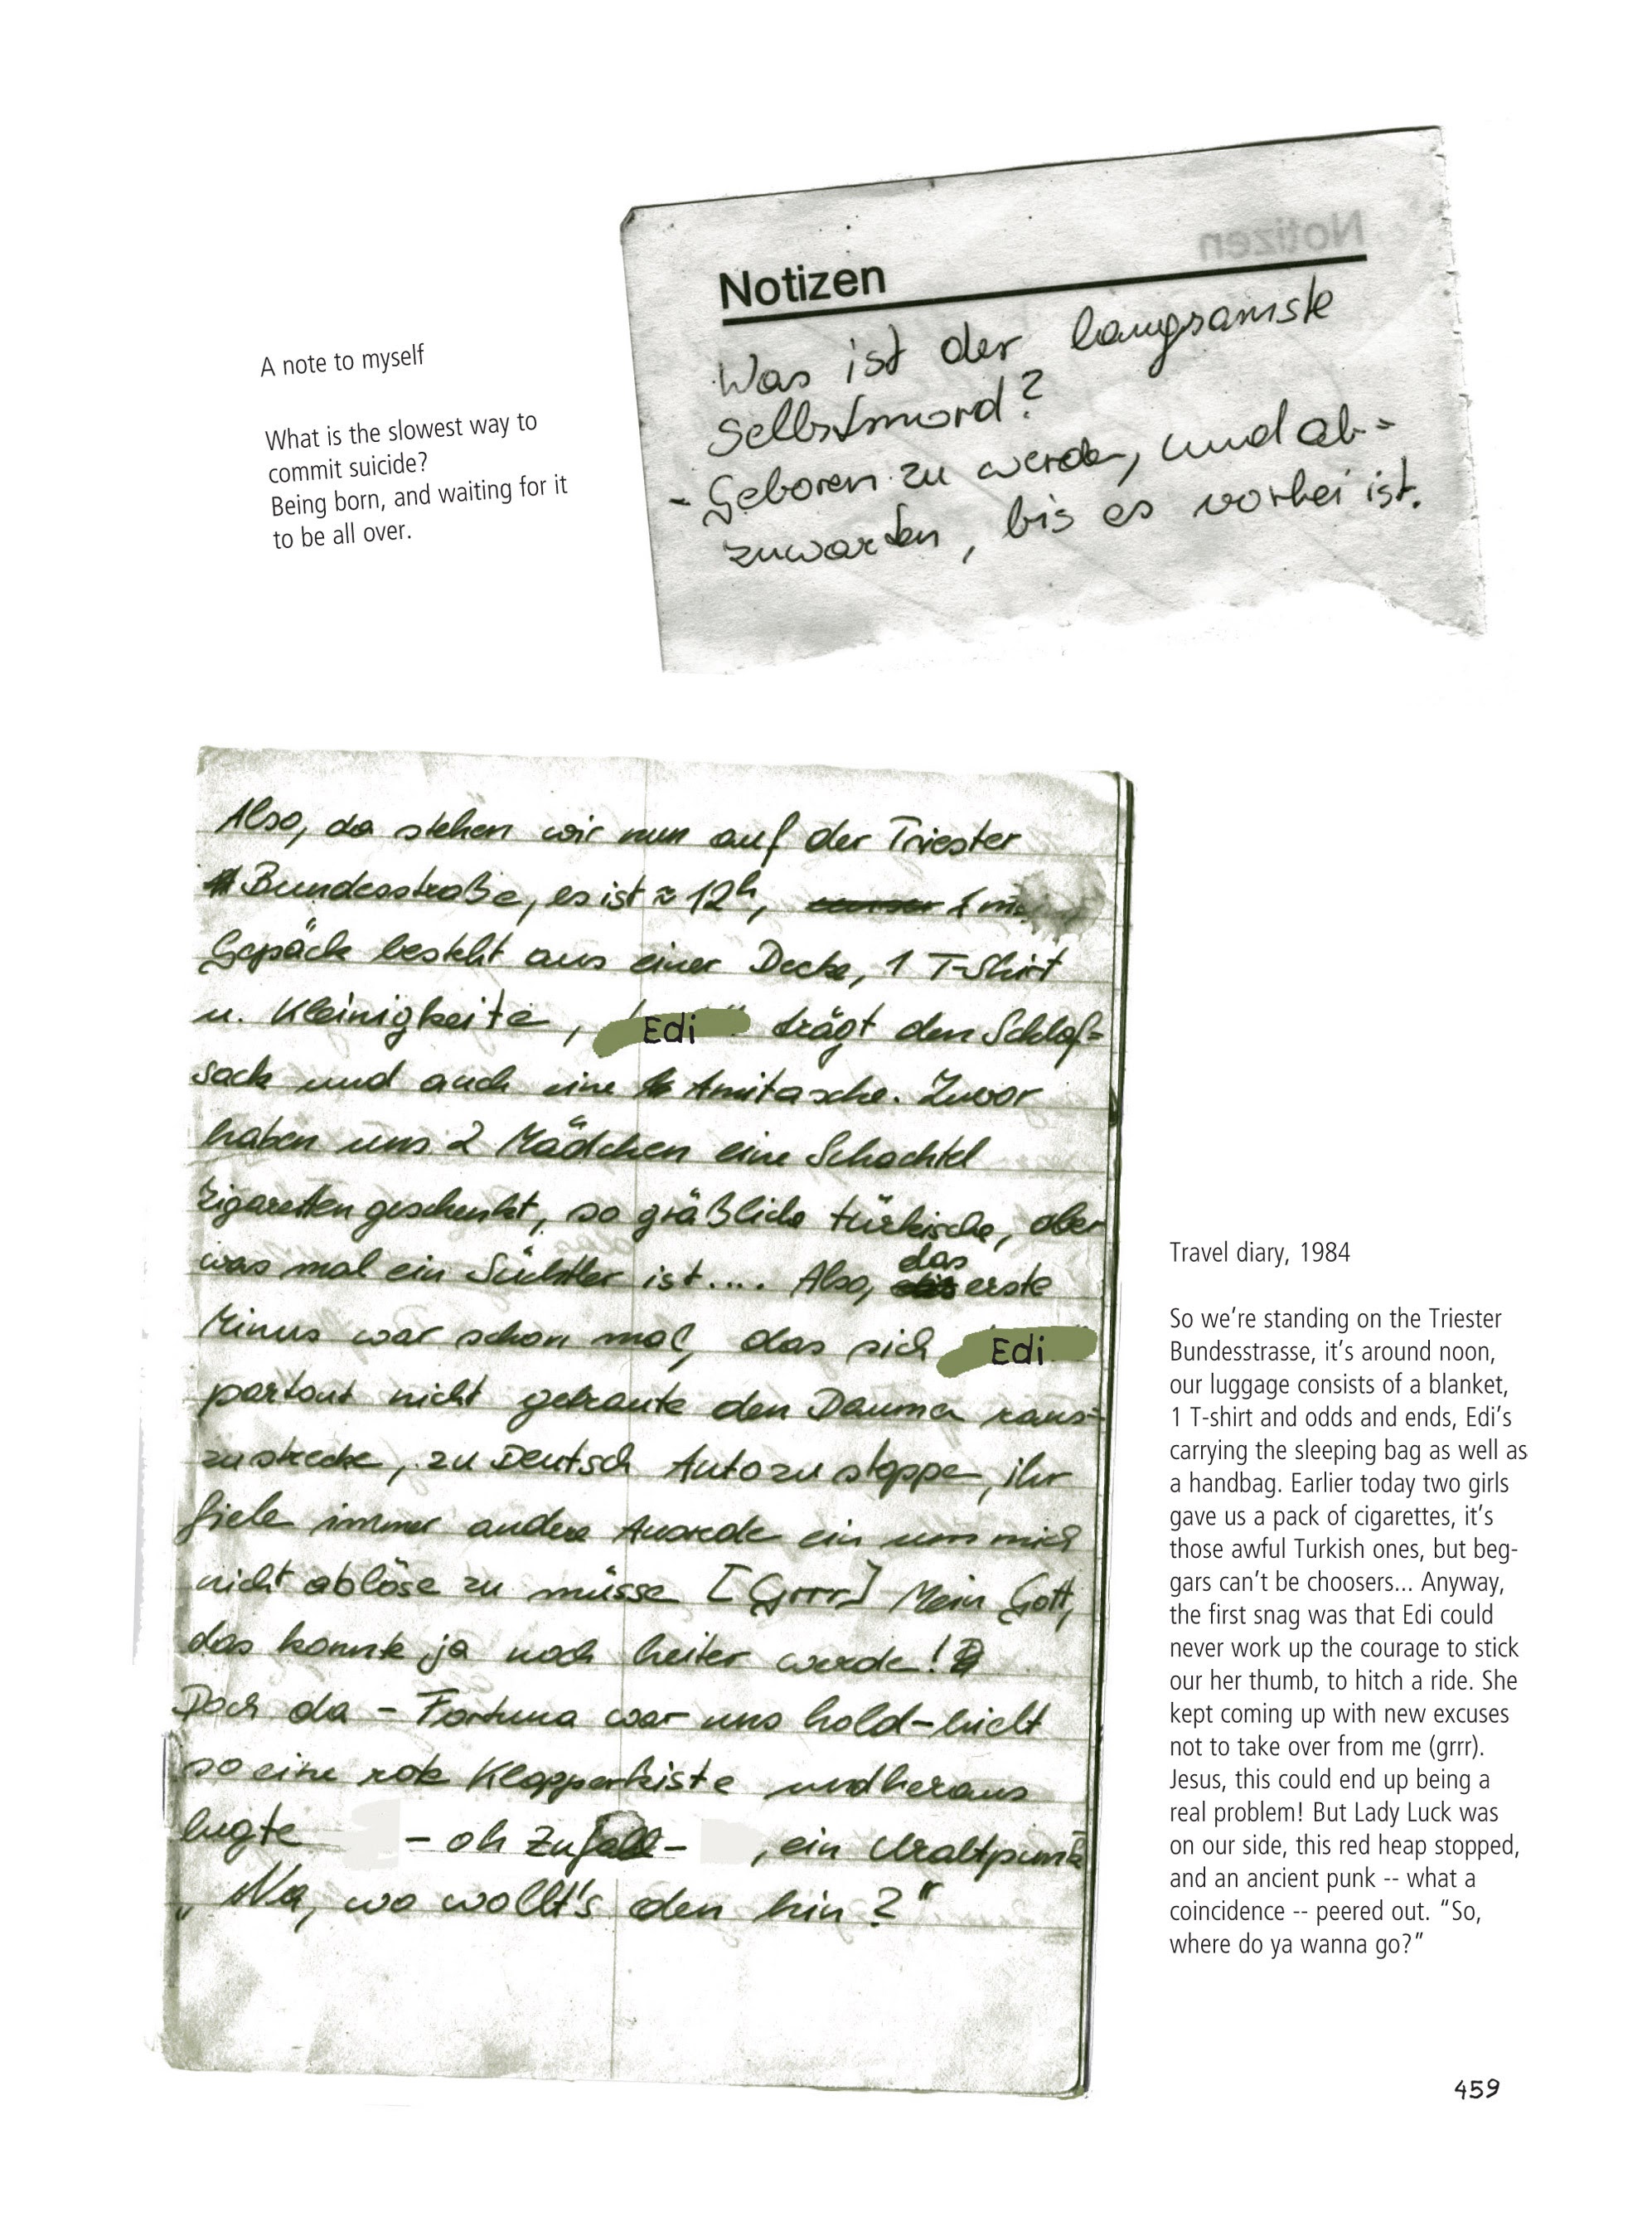 A note to myself
What is the slowest way to
commit suicide?
Being born, and waiting for it
to be all over.
Notizen
Notizen
Was ist der langsamste
Selbstmord?
- Geboren zu werden, und ab-
zuwarten, bis es vorbei ist.
Also, da stehen wir nun auf der Triester
Bundesstraße, es ist ≈ 12h,
Gepäck besteht aus einer Decke, 1 T-Shirt
u. Kleinigkeite, Edi trägt den Schlaf=
sack und auch eine Amitasche. Zuvor
haben uns 2 Mädchen eine Schachtel
Zigaretten geschenkt, so gräßliche türkische, aber
was mal ein Süchtler ist.... Also, das erste
Minus war schon mal, das sich Edi
partout nicht getraute den Daumen raus=
zustrecke, zu Deutsch Autozustoppen, ihr
fiele immer andere Ausrede ein um mich
nicht ablöse zu müsse [Grrr] Mein Gott,
das konnte ja noch heiter werde!
Doch da - Fortuna war uns hold - hielt
so eine rote Klapperkiste und heraus
lugte - oh Zufall - , ein Uraltpunk
„Na, wo wollt's den hin?"
Travel diary, 1984
So we're standing on the Triester
Bundesstrasse, it's around noon,
our luggage consists of a blanket,
1 T-shirt and odds and ends, Edi's
carrying the sleeping bag as well as
a handbag. Earlier today two girls
gave us a pack of cigarettes, it's
those awful Turkish ones, but beg-
gars can't be choosers... Anyway,
the first snag was that Edi could
never work up the courage to stick
our her thumb, to hitch a ride. She
kept coming up with new excuses
not to take over from me (grrr).
Jesus, this could end up being a
real problem! But Lady Luck was
on our side, this red heap stopped,
and an ancient punk -- what a
coincidence -- peered out. “So,
where do ya wanna go?”
459